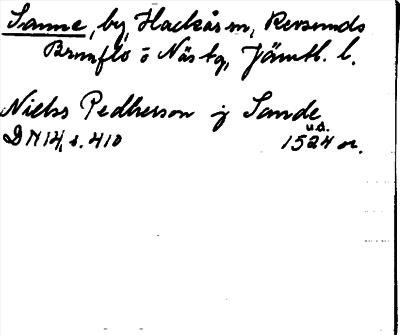 Sanne, by, Hackås sn, Revsunds
Brunflo o Näs tg, Jämtl. l.
Niels Pedherson j Sande
u.d.
DN 14, s. 410 1524 or.